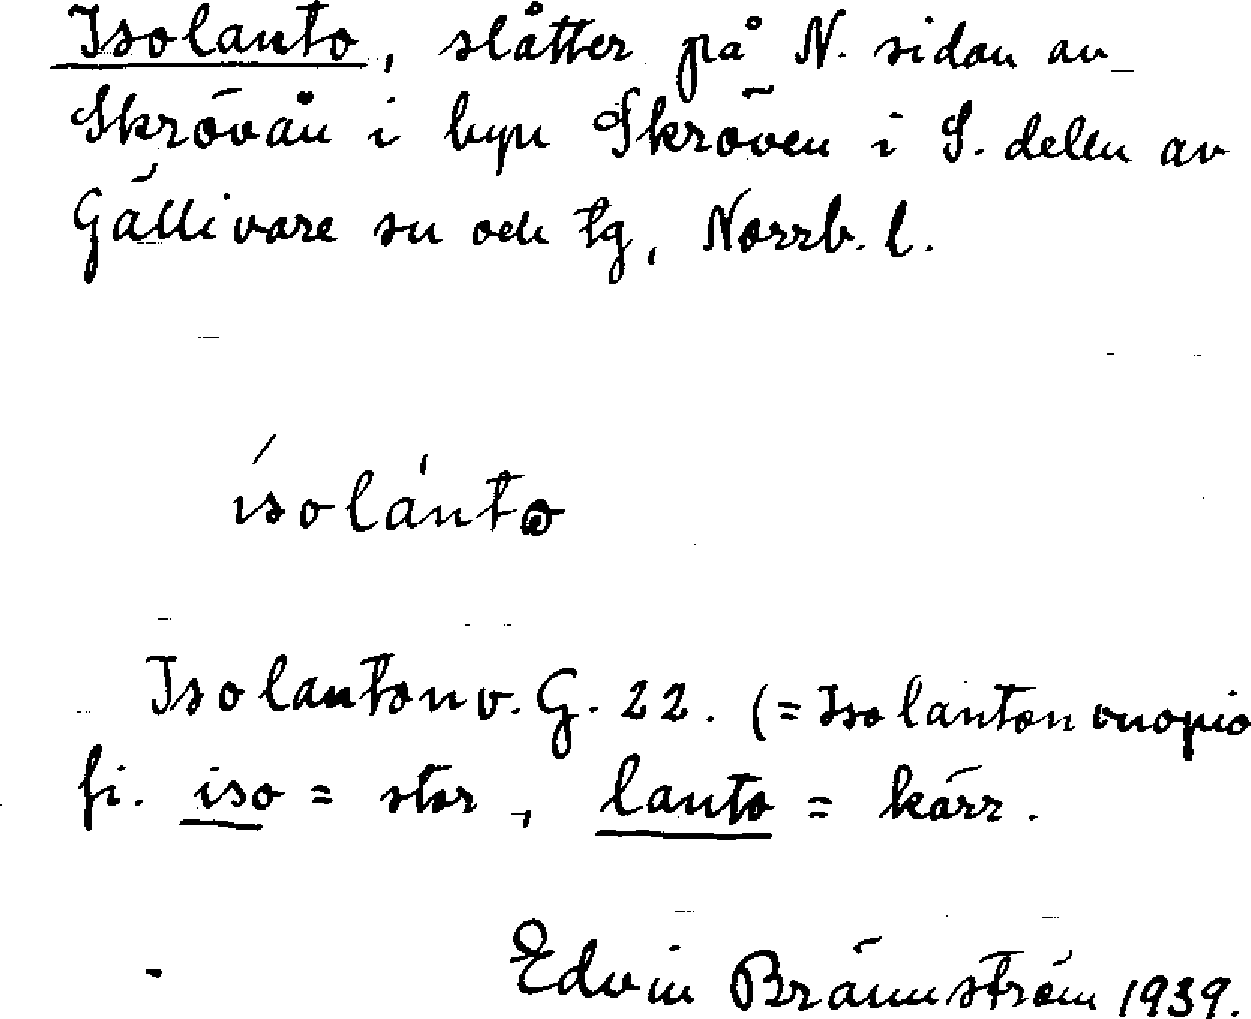 Isolanto, slåtter på N. sidan av
Skrövån i byn Skröven i S. delen av
Gällivare sn och tg, Norrb. l.
ísolànto
Isolantonv. G. 22. (= Isolanton vuopio
fi. iso = stor, lanto = kärr.
Edvin Brännström 1939.